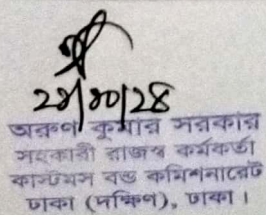 ২৪/১০/২৪
অরুণ কুমার সরকার
সহকারী রাজস্ব কর্মকর্তা
কাস্টমস বন্ড কমিশনারেট
ঢাকা (দক্ষিণ), ঢাকা।